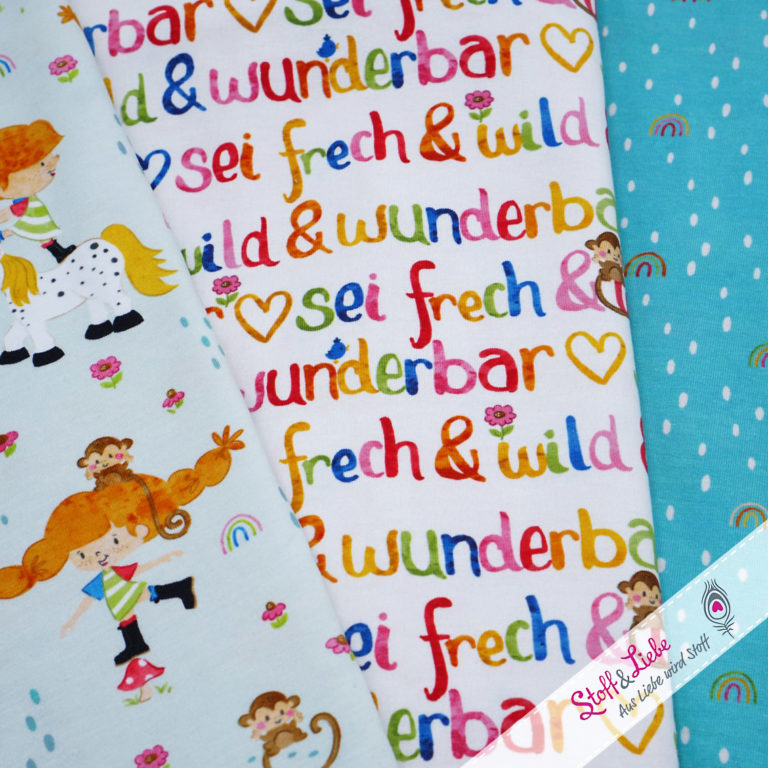 sei frech
bar & wunderbar
ild & wunderbar
sei frech & wild
wild & wunderba
sei frech &
wunderbar
frech & wild
& wunderba
ei frech &
derbar
Stoff & Liebe
Aus Liebe wird Stoff